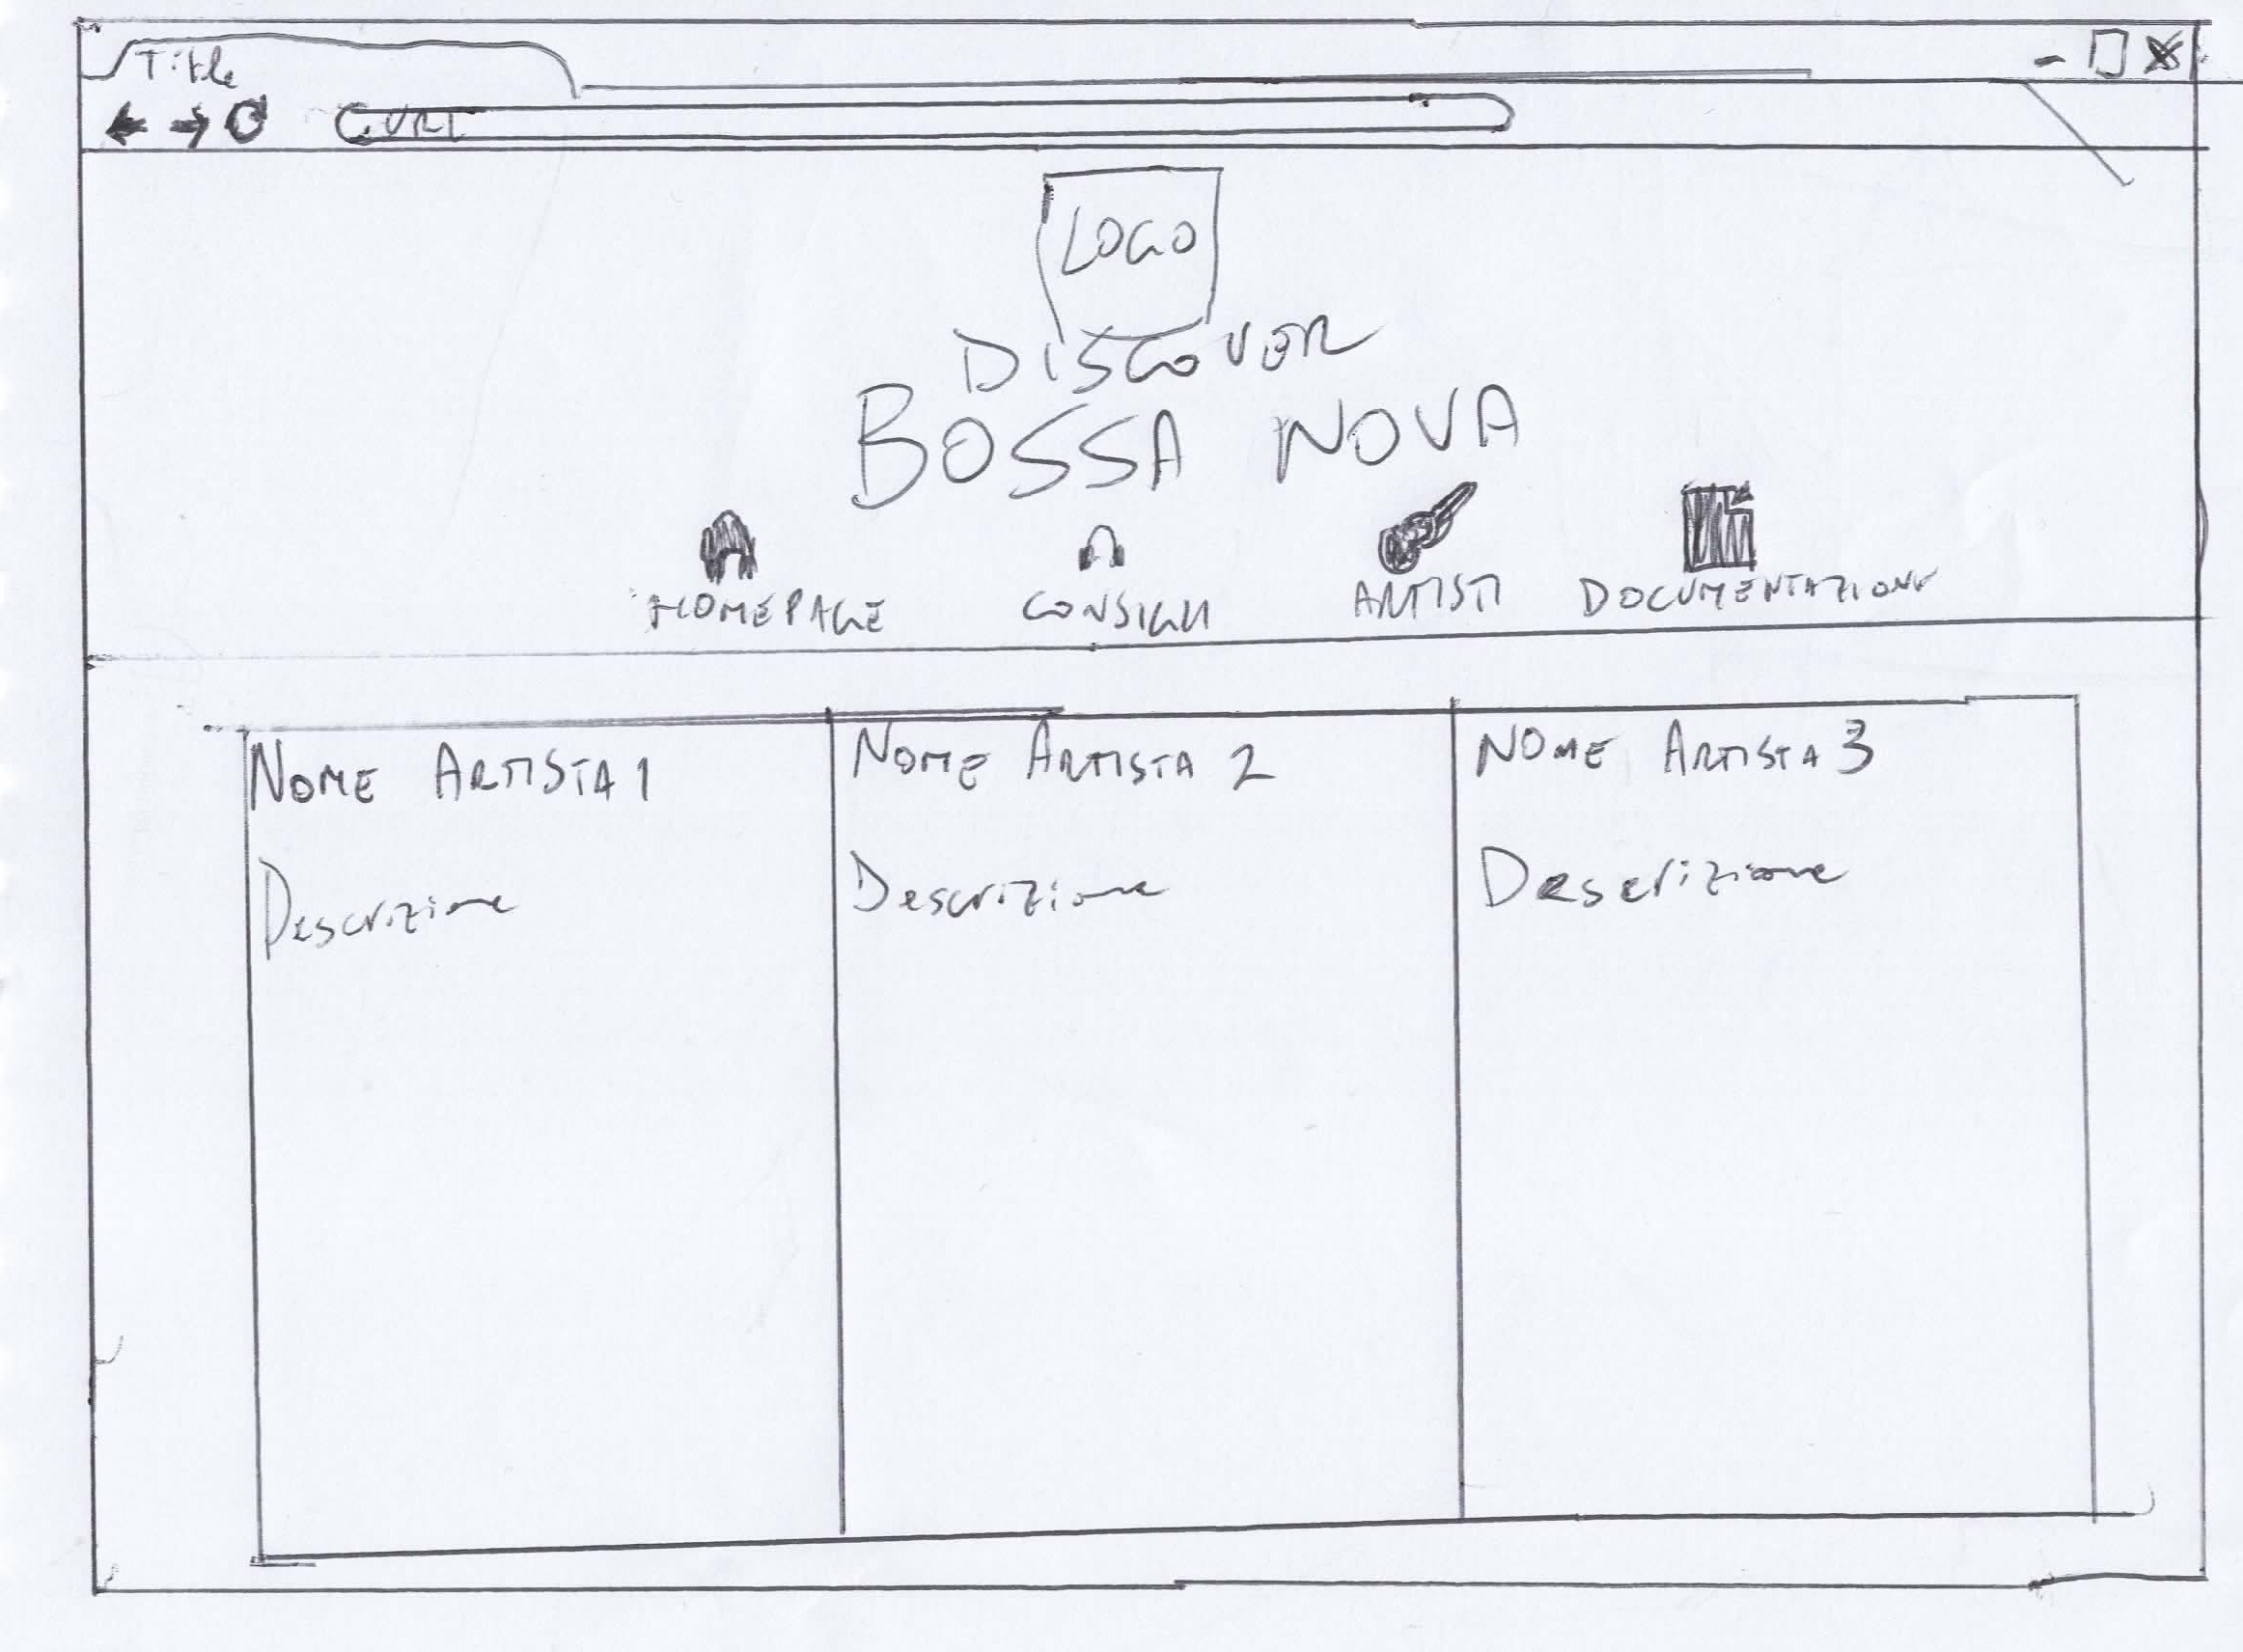 Title
URL
LOGO
DISCOVER
BOSSA NOVA
HOMEPAGE CONSIGLI ARTISTI DOCUMENTAZIONE
NOME ARTISTA 1 NOME ARTISTA 2 NOME ARTISTA 3
Descrizione Descrizione Descrizione